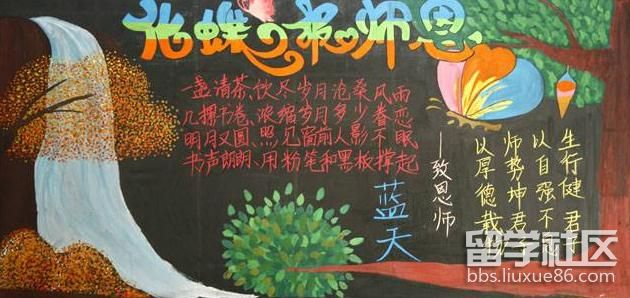 化蝶 报师恩
一盏清茶饮尽岁月沧桑风雨
几 书卷、浓缩岁月多少眷恋
明月又圆、照见窗前人影不眠
书声朗朗、用粉笔和黑板撑起
蓝天
—致恩师
生行健 君子
以自强不
师势坤君子
以厚德载物
留学社区
bbs.liuxue86.com